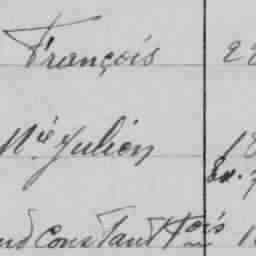 François 22
Mie Julien 18
nd Constant Fois 1